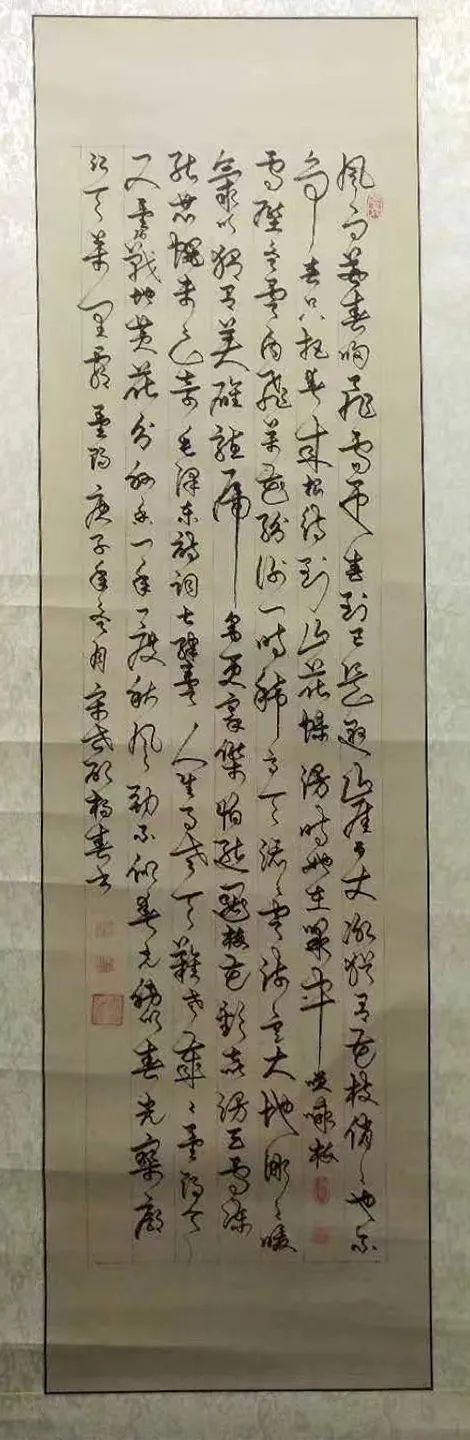 风雨送春归飞雪迎春到已是悬崖百丈冰犹有花枝俏俏也不
争春只把春来报待到山花烂漫时她在丛中笑 咏梅
雪压冬云白絮飞万花纷谢一时稀高天滚滚寒流急大地微微暖
气吹独有英雄驱虎豹更无豪杰怕熊罴梅花欢喜漫天雪冻
死苍蝇未足奇毛泽东诗词七律冬云 人生易老天难老岁岁重阳今
又重阳战地黄花分外香一年一度秋风劲不似春光胜似春光寥廓
江天万里霜重阳庚子年冬月 春书